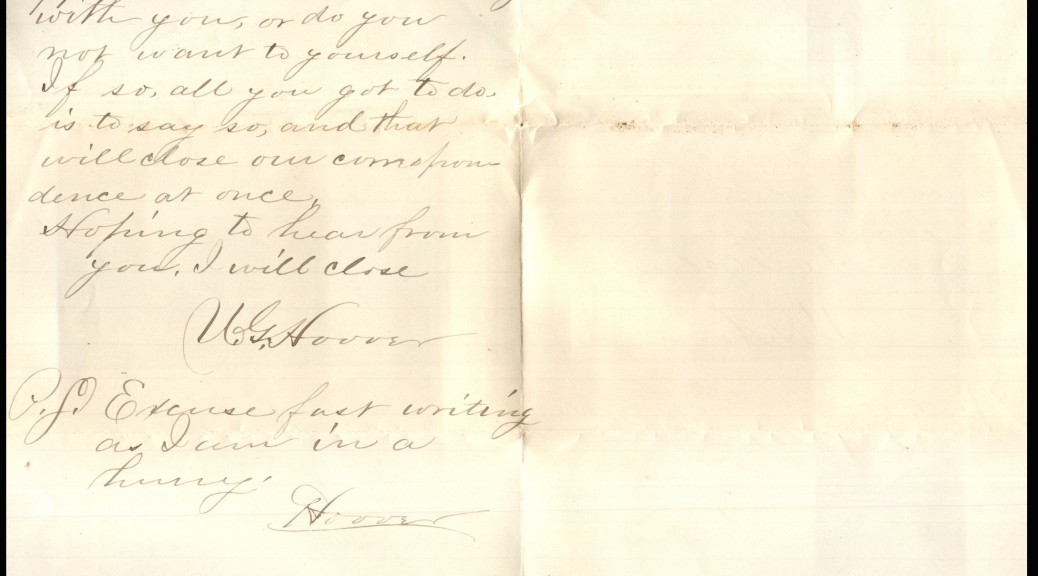 with you, or do you
not want to yourself.
If so, all you got to do
is to say so, and that
will close our correspon-
dence at once.
Hoping to hear from
you, I will close
U.G. Hoover
P.S. Excuse fast writing
as I am in a
hurry.
Hoover